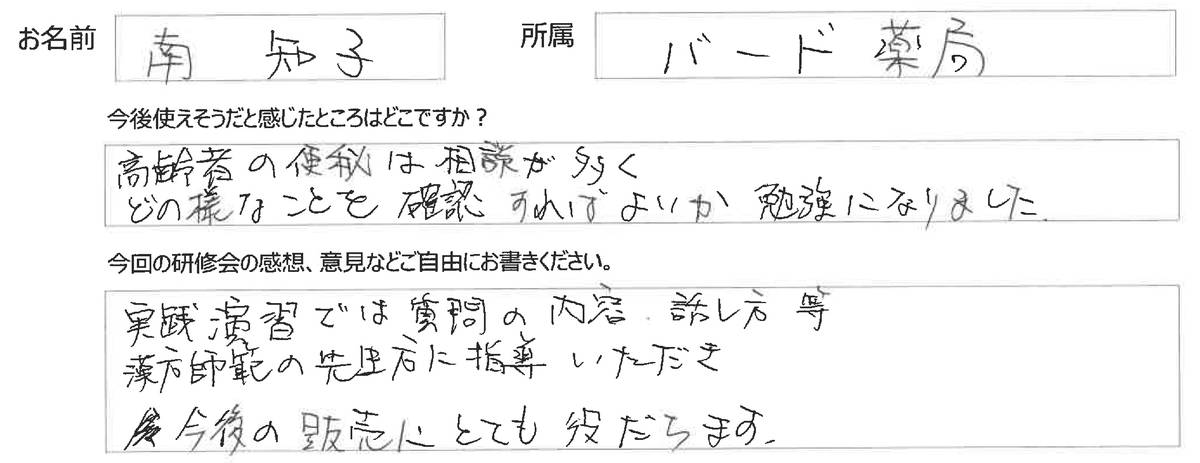 お名前 南 知子 所属 バード薬局
今後使えそうだと感じたところはどこですか？
高齢者の便秘は相談が多く
どの様なことを確認すればよいか勉強になりました.
今回の研修会の感想、意見などご自由にお書きください。
実践演習では質問の内容.話し方等
漢方師範の先生方に指導いただき
今後の販売にとても役だちます.